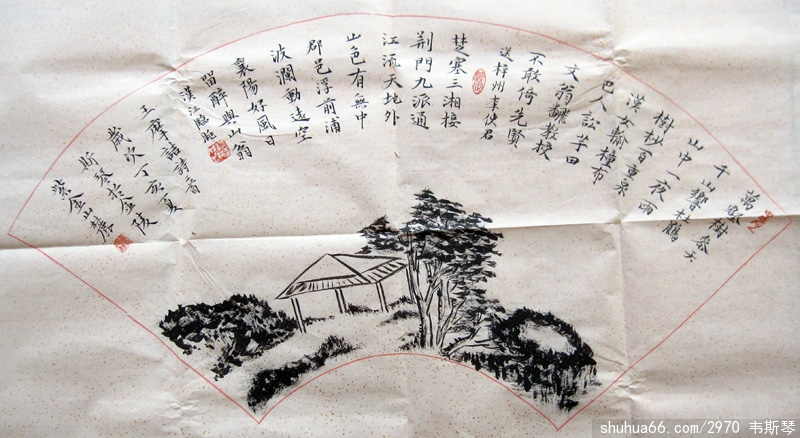 萬壑樹參天
千山響杜鵑
山中一夜雨
樹杪百重泉
漢女輸橦布
巴人訟芋田
文翁翻教授
不敢倚先賢
送梓州李使君
楚塞三湘接
荊門九派通
江流天地外
山色有無中
郡邑浮前浦
波瀾動遠空
襄陽好風日
留醉與山翁
漢江臨眺
王摩詰詩二首
歲次丁亥夏
斯琴於金陵
紫金山麓
shuhua66.com/2970 韦斯琴